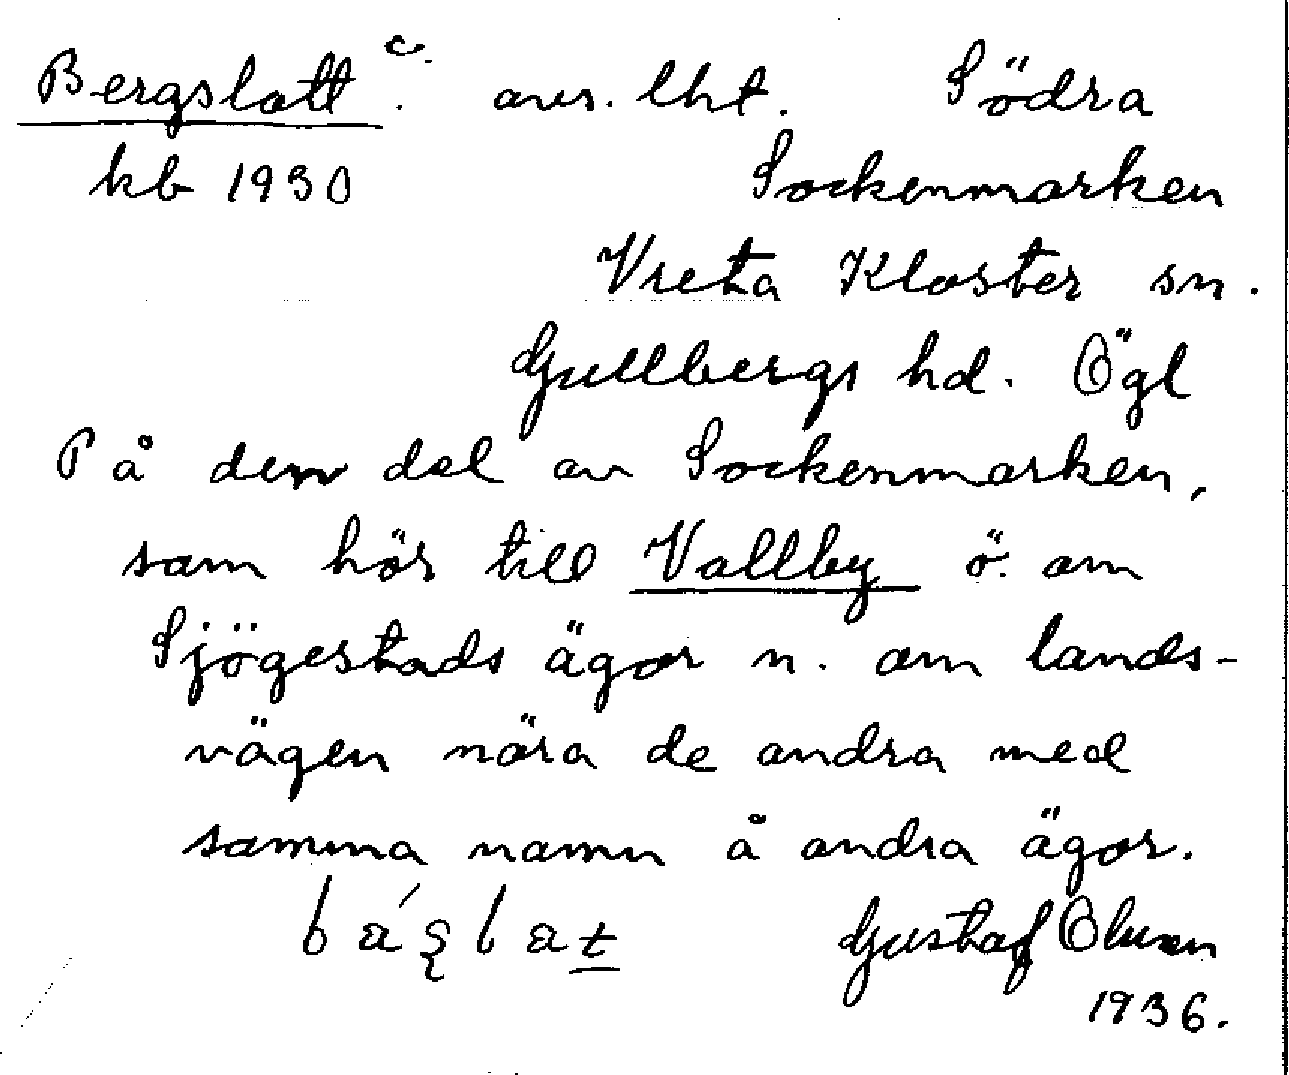 Bergslott c. avs. lht. Södra
kb 1930 Sockenmarken
Vreta Kloster sn.
Gullbergs hd. Ögl
På den del av Sockenmarken,
som hör till Vallby ö. om
Sjögestads ägor n. om lands-
vägen nära de andra med
samma namn å andra ägor.
Gustaf Olsson
1936.